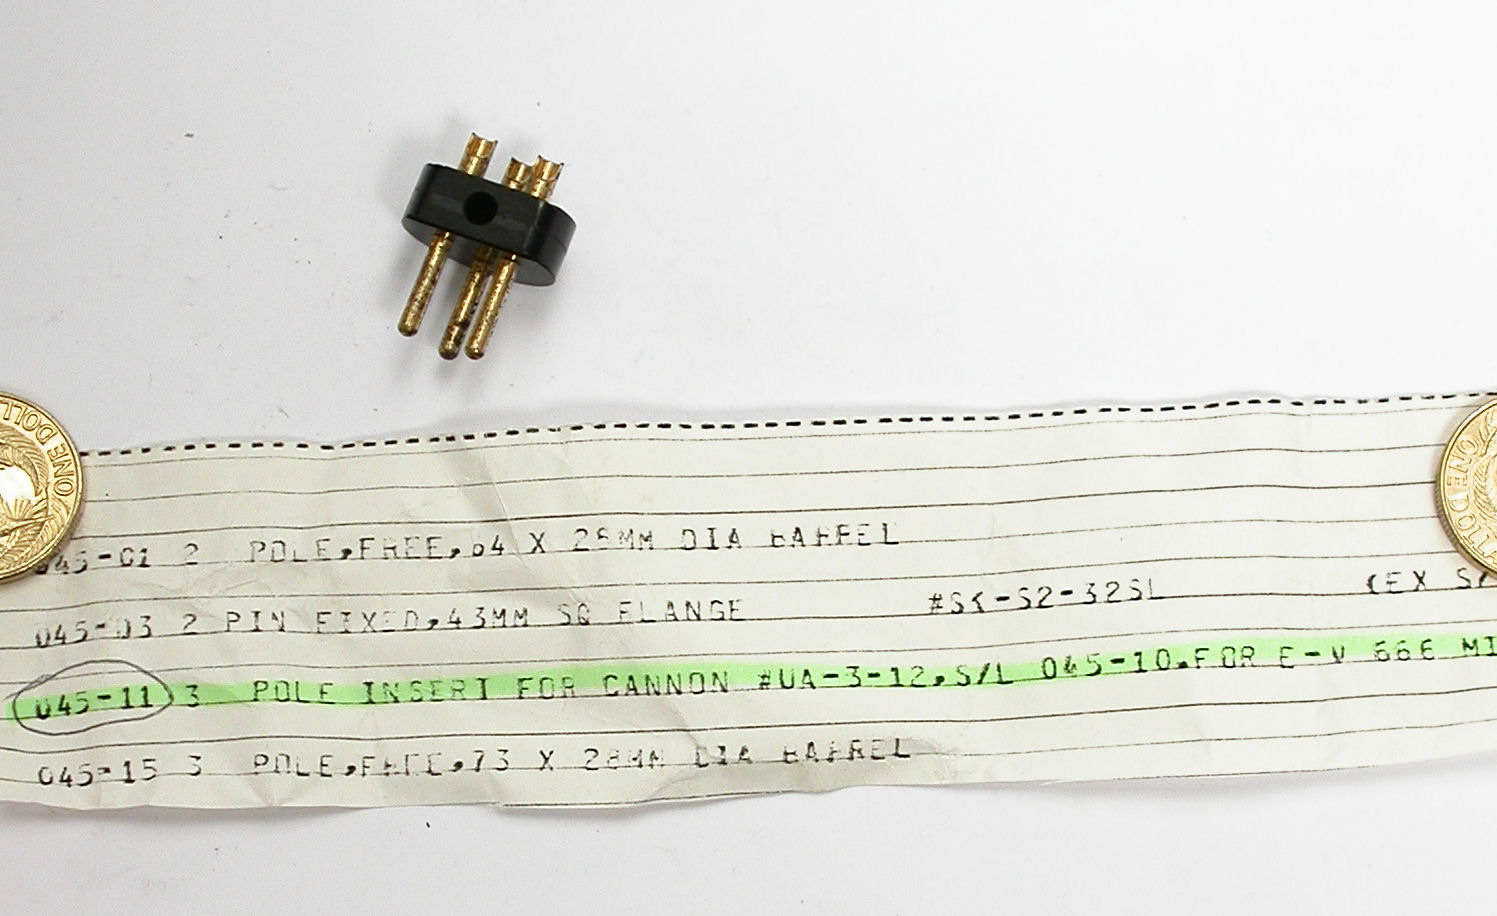 ONE DOLL
045-01 2 POLE,FREE,64 X 28MM DIA BARREL
045-03 2 PIN FIXED,43MM SQ FLANGE #SK-S2-32SL (EX S/
045-11 3 POLE INSERT FOR CANNON #UA-3-12,S/L 045-10.FOR E-V 666 MI
045-15 3 POLE,FREE,73 X 28MM DIA BARREL
ONE D